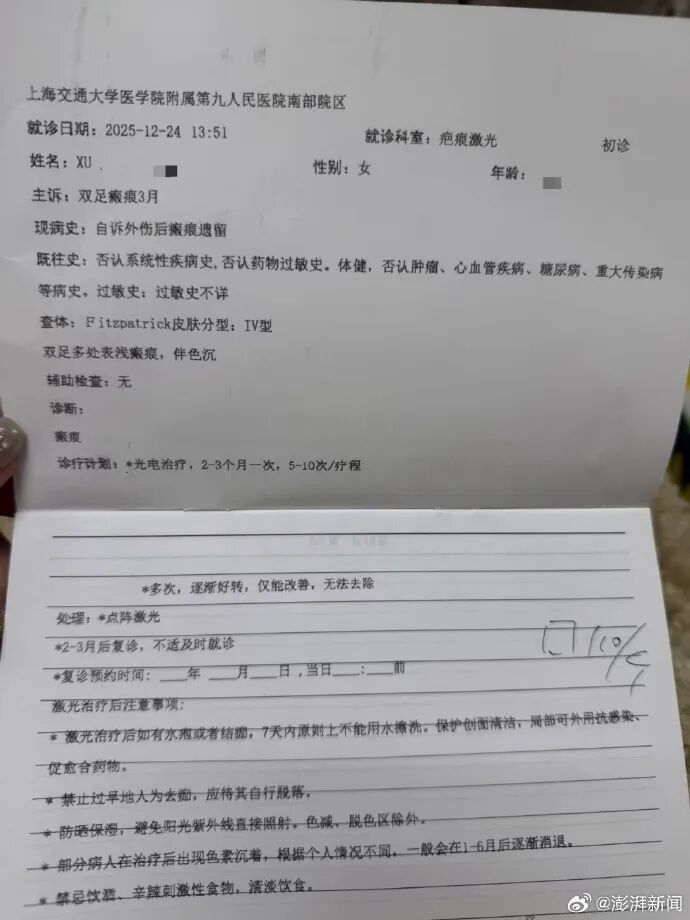 上海交通大学医学院附属第九人民医院南部院区
就诊日期：2025-12-24 13:51 就诊科室：疤痕激光 初诊
姓名：XU 性别：女 年龄：
主诉：双足瘢痕3月
现病史：自诉外伤后瘢痕遗留
既往史：否认系统性疾病史,否认药物过敏史。体健，否认肿瘤、心血管疾病、糖尿病、重大传染病
等病史。过敏史：过敏史不详
查体：Fitzpatrick皮肤分型：IV型
双足多处表浅瘢痕，伴色沉
辅助检查：无
诊断：
瘢痕
诊疗计划：*光电治疗，2-3个月一次，5-10次/疗程
*多次，逐渐好转，仅能改善，无法去除
处理：*点阵激光
*2-3月后复诊，不适及时就诊
*复诊预约时间：___年 ___月___日 ,当日___:___前
激光治疗后注意事项:
* 激光治疗后如有水疱或者结痂，7天内原则上不能用水擦洗。保护创面清洁，局部可外用抗感染、
促愈合药物。
* 禁止过早地人为去痂，应待其自行脱落。
* 防晒保湿，避免阳光紫外线直接照射。色减、脱色区除外。
* 部分病人在治疗后出现色素沉着，根据个人情况不同，一般会在1-6月后逐渐消退。
* 禁忌饮酒、辛辣刺激性食物，清淡饮食。
@澎湃新闻